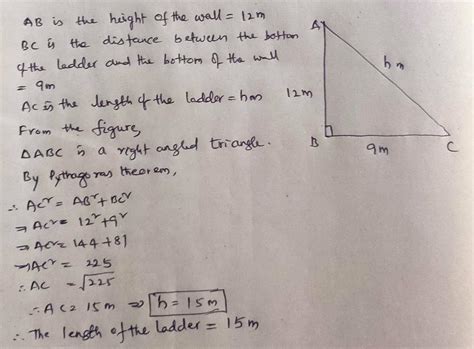 AB is the height of the wall = 12m
BC is the distance between the bottom
of the ladder and the bottom of the wall
= 9m
AC is the length of the ladder = hm
From the figure,
△ABC is a right angled triangle.
By Pythagoras theorem,
∴ AC² = AB² + BC²
⇒ AC² = 12² + 9²
⇒ AC² = 144 + 81
⇒ AC² = 225
∴ AC = √225
∴ AC = 15m ⇒ h = 15m
∴ The length of the ladder = 15m
A
hm
12m
B
9m
C